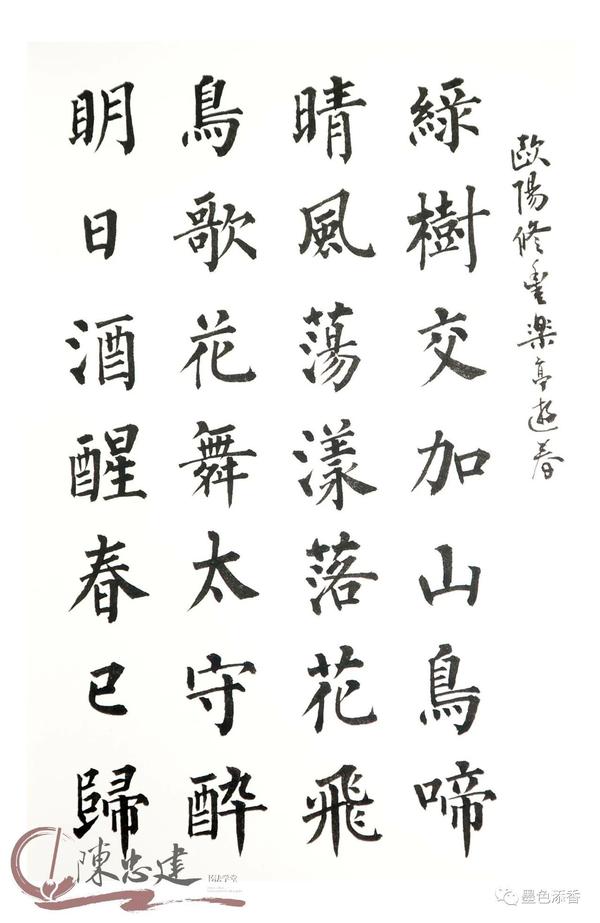 歐陽修豐樂亭遊春
綠樹交加山鳥啼
晴風蕩漾落花飛
鳥歌花舞太守醉
明日酒醒春已歸
陳忠建
书法学堂
墨色添香